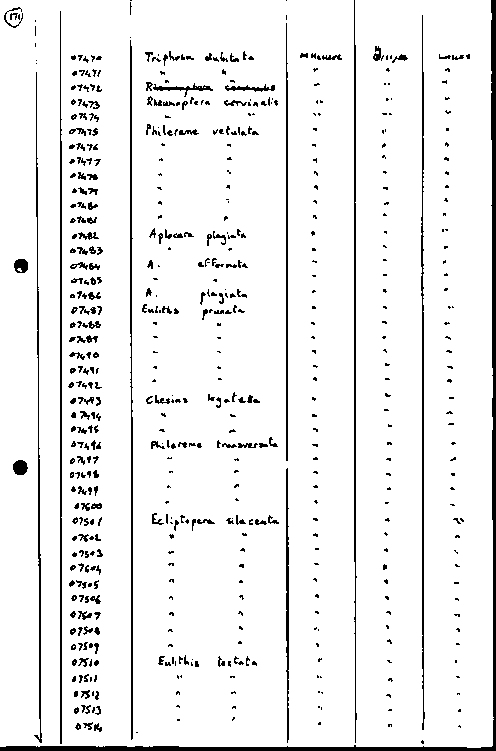 171
07470 Triphosa dubitata
07471 " "
07472
07473 Rheumaptera cervinalis " " "
07474 " " " " "
07475 Philereme vetulata " " "
07476 " " " " "
07477 " " " " "
07478 " " " " "
07479 " " " " "
07480 " " " " "
07481 " " " " "
07482 Aplocera plagiata " " "
07483 " " " " "
07484 A. efformata " " "
07485 " " " " "
07486 A. plagiata " " "
07487 Eulithis prunata " " "
07488 " " " " "
07489 " " " " "
07490 " " " " "
07491 " " " " "
07492 " " " " "
07493 Chesias legatella " " "
07494 " " " " "
07495 " " " " "
07496 Philereme transversata " " "
07497 " " " " "
07498 " " " " "
07499 " " " " "
07500 " " " " "
07501 Ecliptopera silaceata " " "
07502 " " " " "
07503 " " " " "
07504 " " " " "
07505 " " " " "
07506 " " " " "
07507 " " " " "
07508 " " " " "
07509 " " " " "
07510 Eulithis testata " " "
07511 " " " " "
07512 " " " " "
07513 " " " " "
07514 " " " " "